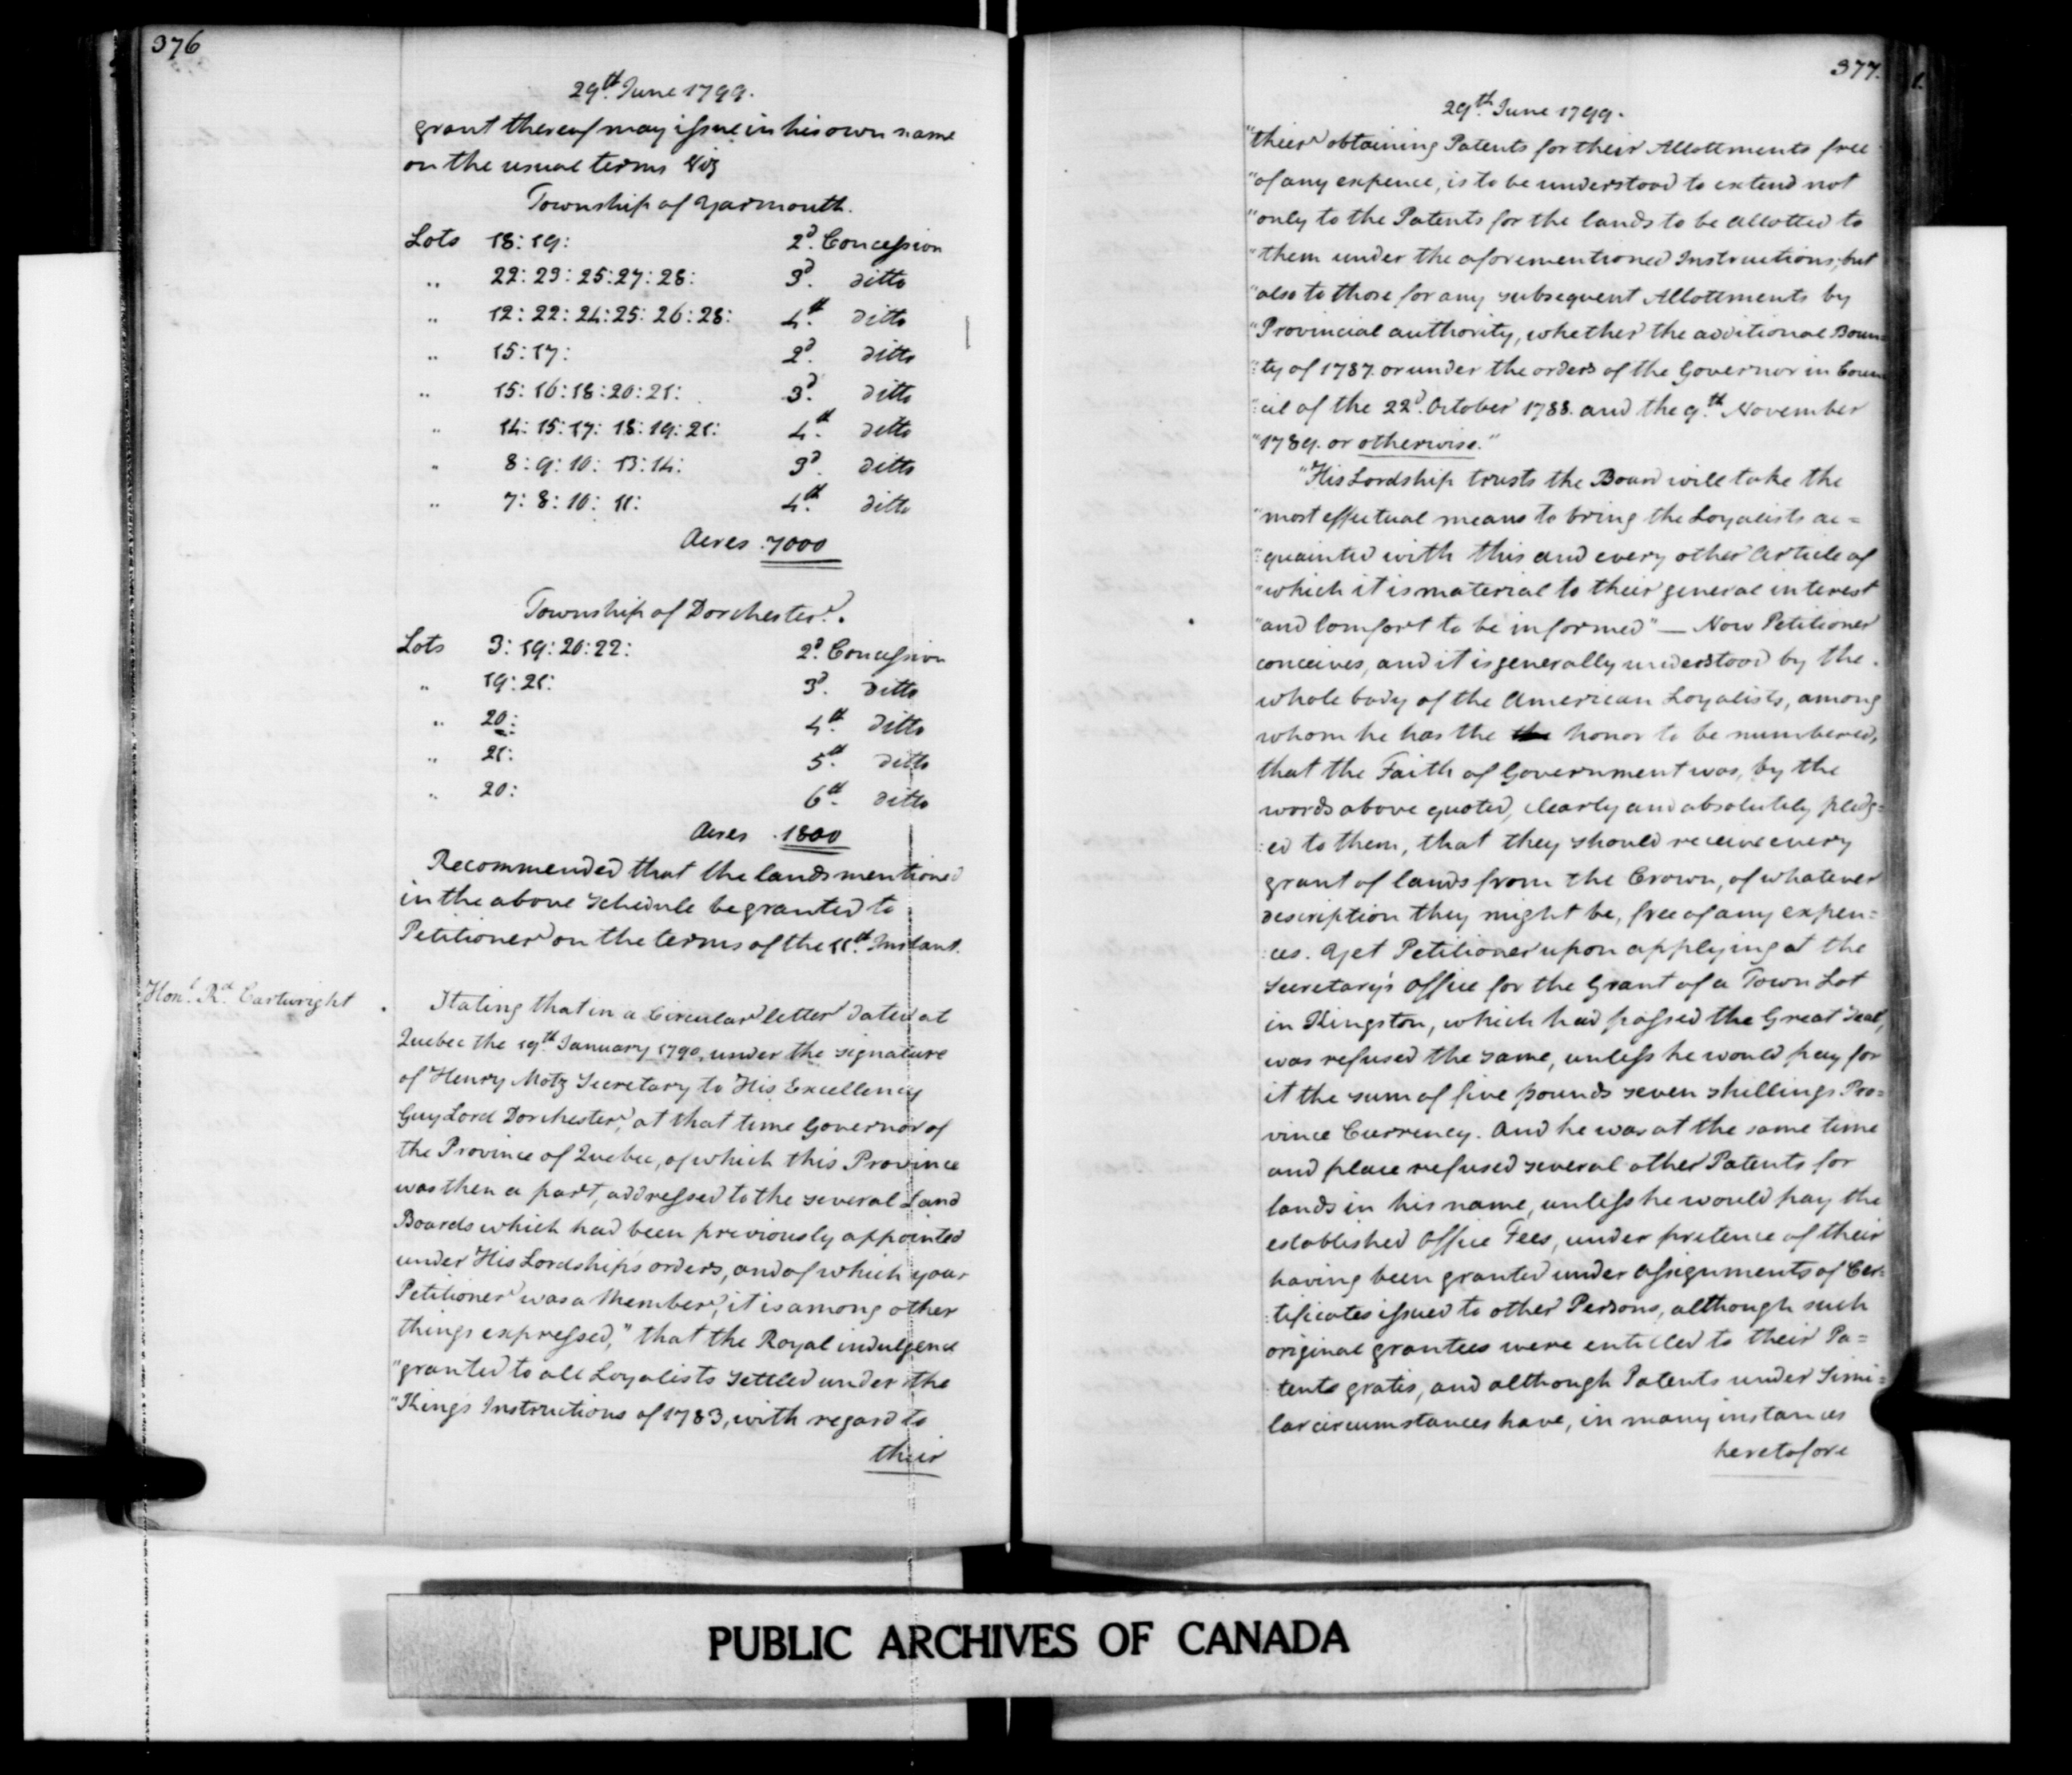 376
29th. June 1799.
grant thereof may issue in his own name
on the usual terms Viz
Township of Yarmouth.
Lots 18: 19: 2d. Concession
" 22: 23: 25: 27: 28: 3d. ditto
" 12: 22: 24: 25: 26: 28: 4th. ditto
" 15: 17: 2d. ditto
" 15: 16: 18: 20: 21: 3d. ditto
" 14: 15: 17: 18: 19: 21: 4th. ditto
" 8: 9: 10: 13: 14: 3d. ditto
" 7: 8: 10: 11: 4th. ditto
Acres 7000
Township of Dorchester.
Lots 3: 19: 20: 22: 2d. Concession
" 19: 21: 3d. ditto
" 20: 4th. ditto
" 21: 5th. ditto
" 20: 6th. ditto
Acres 1800
Recommended that the lands mentioned
in the above schedule be granted to
Petitioner on the terms of the 11th. Instant.
Honl. Rd. Cartwright
Stating that in a Circular letter dated at
Quebec the 19th. January 1790, under the signature
of Henry Motz Secretary to His Excellency
Guy Lord Dorchester, at that time Governor of
the Province of Quebec, of which this Province
was then a part, addressed to the several Land
Boards which had been previously appointed
under His Lordship's orders, and of which your
Petitioner was a Member, it is among other
things expressed, "that the Royal indulgence
"granted to all Loyalists settled under the
"King's Instructions of 1783, with regard to
their
377.
29th. June 1799.
"their obtaining Patents for their Allottments free
"of any expence, is to be understood to extend not
"only to the Patents for the lands to be allotted to
"them under the aforementioned Instructions; but
"also to those for any subsequent Allottments by
"Provincial authority, whether the additional Boun=
":ty of 1787. or under the orders of the Governor in Coun
":cil of the 22d. October 1788. and the 9th. November
"1789. or otherwise."
"His Lordship trusts the Board will take the
"most effectual means to bring the Loyalists ac=
":quainted with this and every other Article of
"which it is material to their general interest
"and comfort to be informed" — Now Petitioner
conceives, and it is generally understood by the
whole body of the American Loyalists, among
whom he has the the honor to be numbered,
that the Faith of Government was, by the
words above quoted, clearly and absolutely pledg=
:ed to them, that they should receive every
grant of lands from the Crown, of whatever
description they might be, free of any expen=
:ces. Yet Petitioner upon applying at the
Secretary's Office for the Grant of a Town Lot
in Kingston, which had passed the Great Seal,
was refused the same, unless he would pay for
it the sum of five pounds seven shillings Pro=
vince Currency. And he was at the same time
and place refused several other Patents for
lands in his name, unless he would pay the
established Office Fees, under pretence of their
having been granted under assignments of Cer:
:tificates issued to other Persons, although such
original grantees were entitled to their Pa=
:tents gratis, and although Patents under Simi=
lar circumstances have, in many instances
heretofore
PUBLIC ARCHIVES OF CANADA